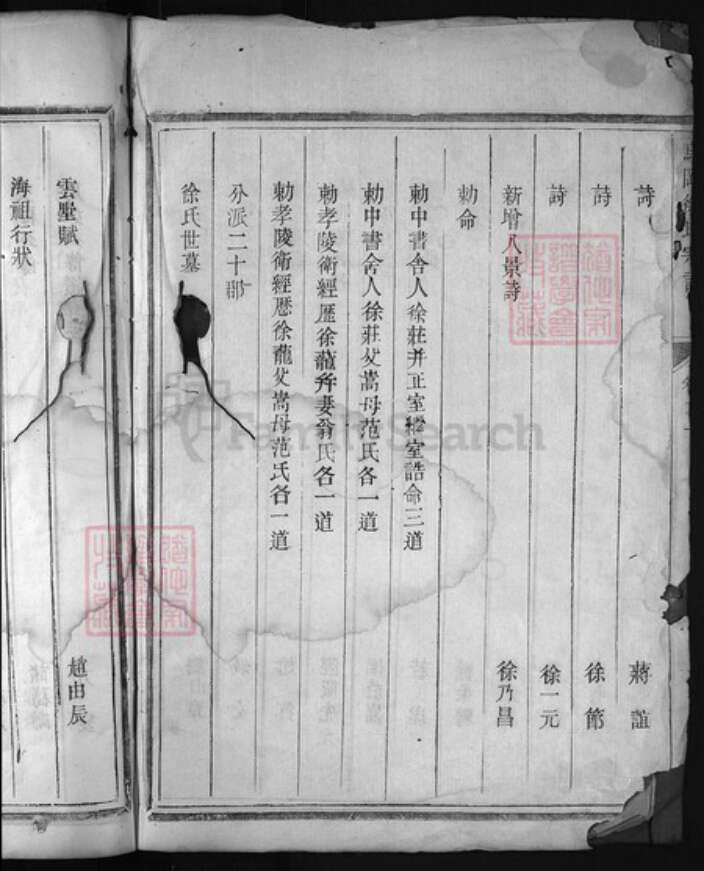 詩 蔣誼
詩 徐節
詩 徐一元
新增八景詩 徐乃昌
勅命
勅中書舍人徐莊并正室繼室誥命三道
勅中書舍人徐莊父嵩母范氏各一道
勅孝陵衛經歷徐蘢并妻翁氏各一道
勅孝陵衛經歷徐蘢父嵩母范氏各一道
分派二十郡
徐氏世墓
雲墅賦 趙由辰
海祖行狀
FamilySearch